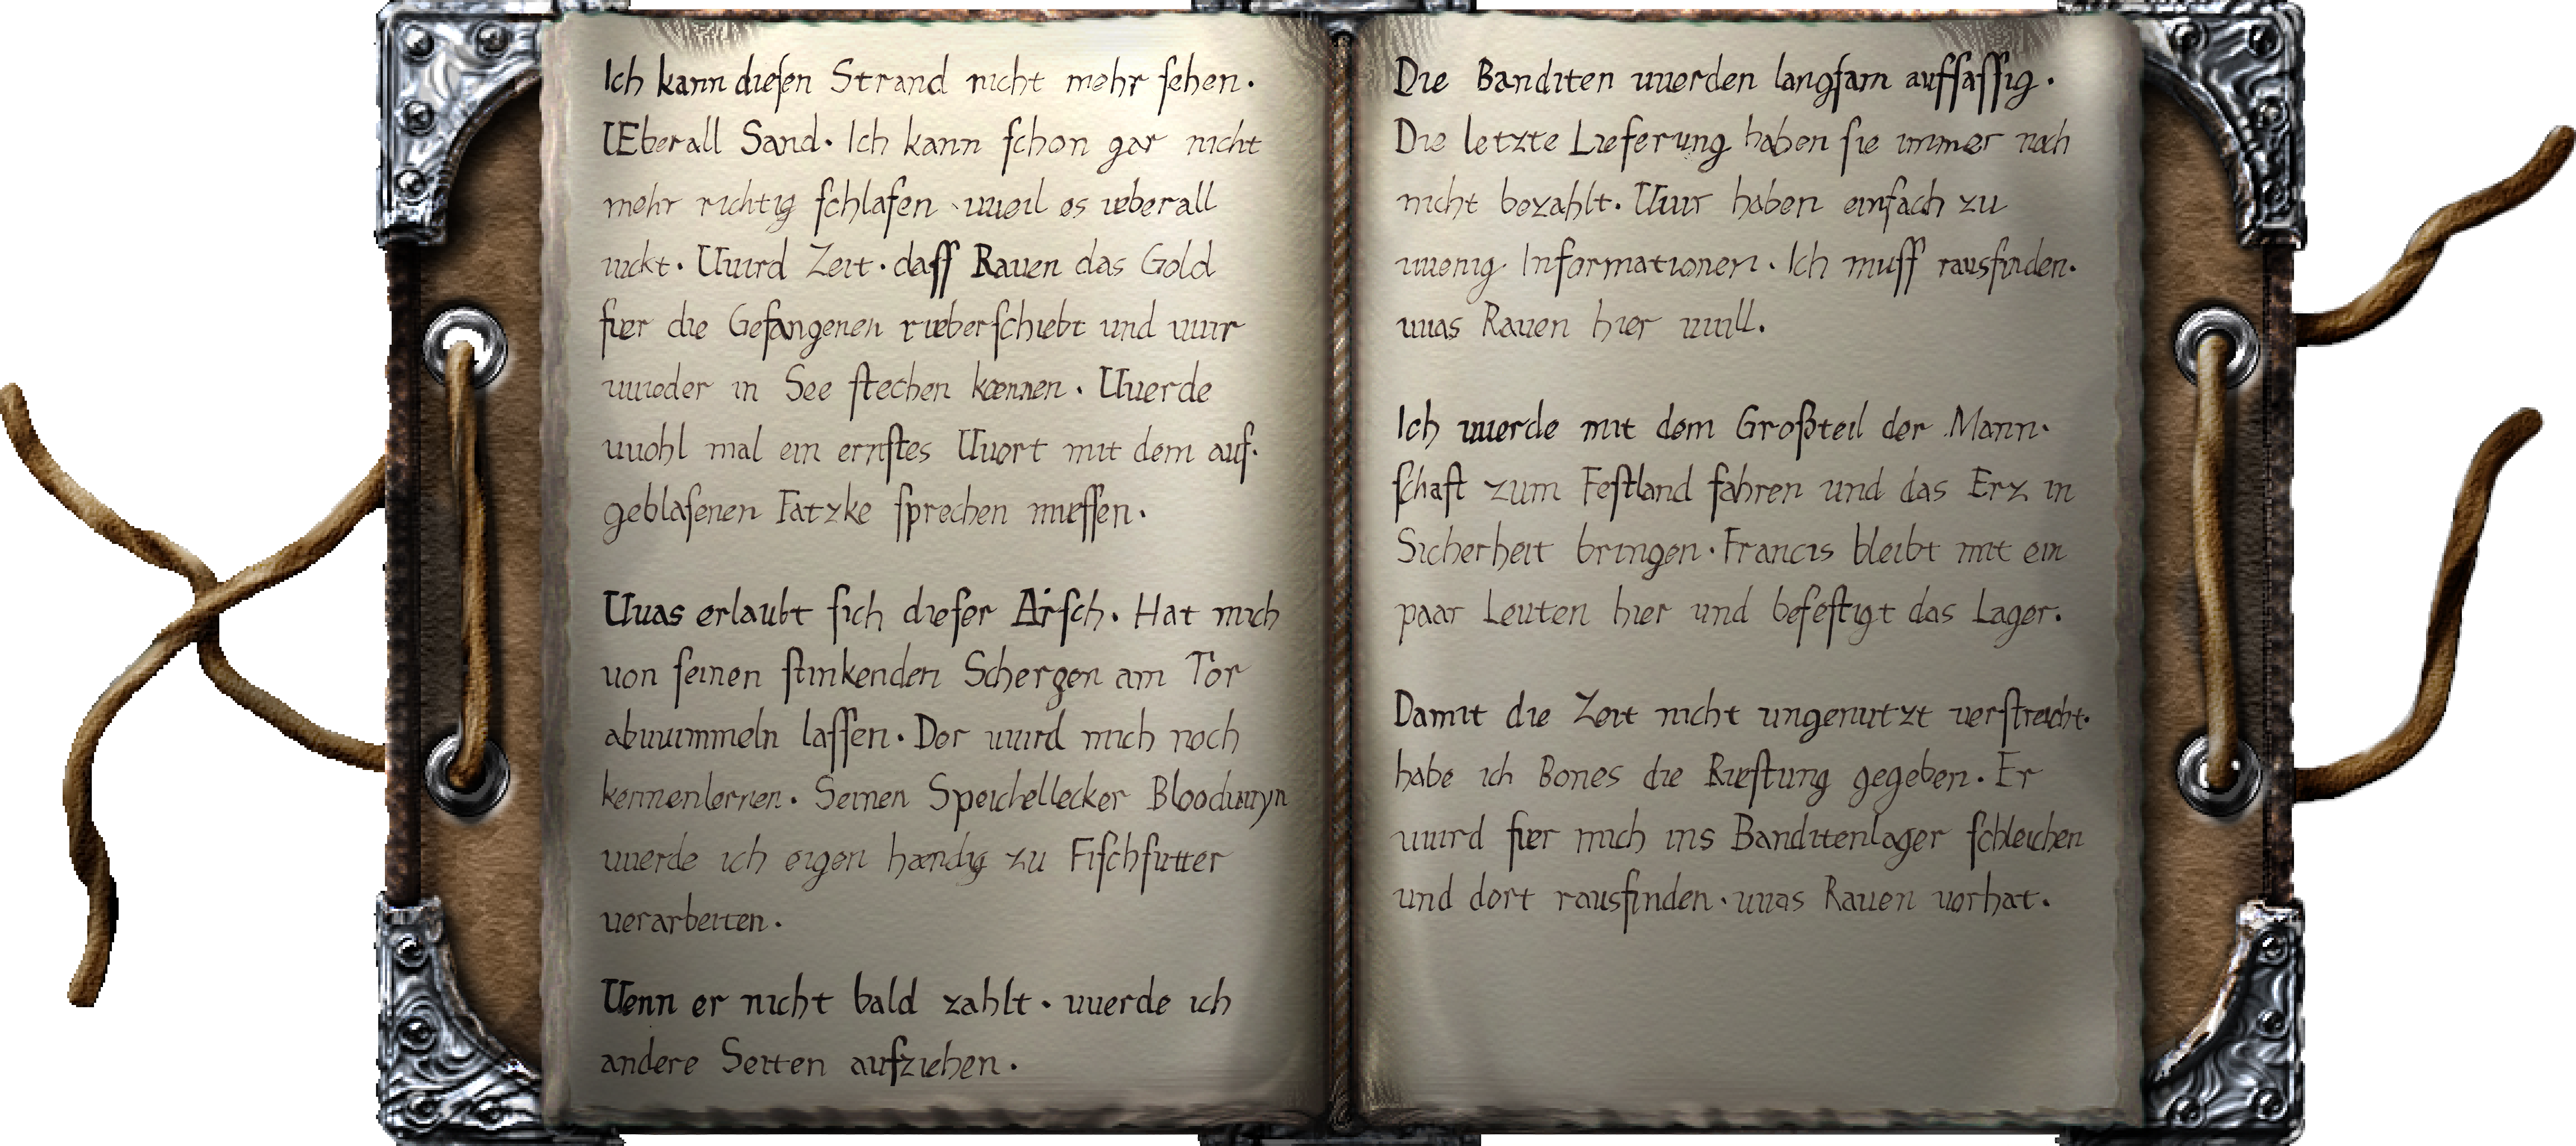 Ich kann dieſen Strand nicht mehr ſehen.
UEberall Sand. Ich kann ſchon gar nicht
mehr richtig ſchlafen, weil es ueberall
juckt. Wird Zeit, daſſ Raven das Gold
fuer die Gefangenen rueberſchiebt und wir
wieder in See ſtechen koennen. Werde
wohl mal ein ernſtes Wort mit dem auf-
geblaſenen Fatzke ſprechen mueſſen.
Was erlaubt ſich dieſer Arſch. Hat mich
von ſeinen ſtinkenden Schergen am Tor
abwimmeln laſſen. Der wird mich noch
kennenlernen. Seinen Speichellecker Bloodwyn
werde ich eigen haendig zu Fiſchfutter
verarbeiten.
Wenn er nicht bald zahlt, werde ich
andere Seiten aufziehen.
Die Banditen werden langſam aufſaſſig.
Die letzte Lieferung haben ſie immer noch
nicht bezahlt. Wir haben einfach zu
wenig Informationen. Ich muſſ rausfinden,
was Raven hier will.
Ich werde mit dem Großteil der Mann-
ſchaft zum Feſtland fahren und das Erz in
Sicherheit bringen. Francis bleibt mit ein
paar Leuten hier und befeſtigt das Lager.
Damit die Zeit nicht ungenutzt verſtreicht,
habe ich Bones die Rueſtung gegeben. Er
wird fuer mich ins Banditenlager ſchleichen
und dort rausfinden, was Raven vorhat.